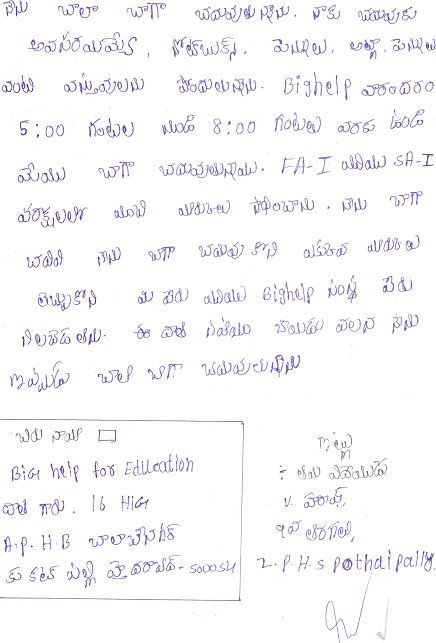 నేను చాలా బాగా చదువుతున్నాను. నాకు చదువుకు
అవసరమయ్యే, నోట్‌బుక్స్, పెన్నులు, అట్టా, పెన్సులు
వంటి వస్తువులను పొందుతున్నాను. Bighelp వారందరం
5:00 గంటల నుండి 8:00 గంటలు వరకు ఉండి
మేము బాగా చదువుతున్నాము. FA-I మరియు SA-I
పరీక్షలలో మంచి మార్కులు సాధించాను. నేను బాగా
చదివి నేను బాగా చదువుకొని మార్కులు
తెచ్చుకొని మీ పేరు మరియు Bighelp సంస్థ పేరు
నిలబెడతాను. ఈ వలన నేను
ఇప్పుడు చాలా బాగా చదువుతున్నాను
Big help for Education
గారు. 16 HIG
A.P.H.B బాలాజీనగర్
కుకట్ పల్లి హైదరాబాద్-500054
ఇట్లు
V.
తరగతి,
Z.P.H.S pothaipally.